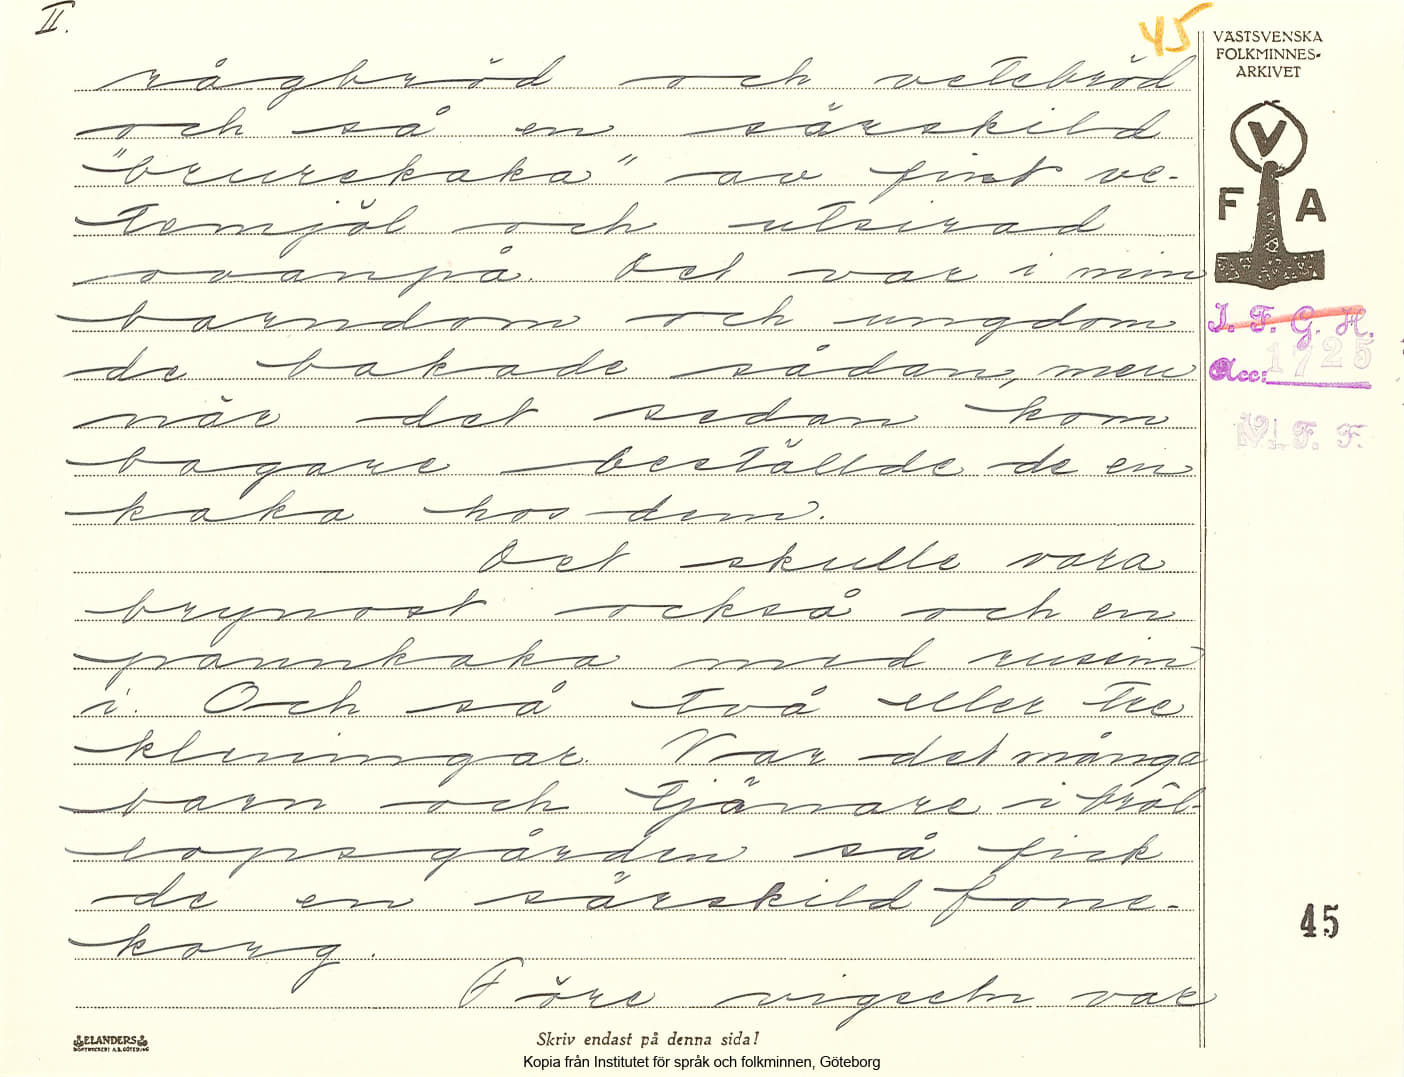 II.
45
VÄSTSVENSKA
FOLKMINNES-
ARKIVET
V
F A
I. F. G. H.
Acc: 1725
V. F. F.
rågbröd och vetebröd
och så en särskild
"brurekaka" av fint ve-
temjöl och utsirad
ovanpå. Det var i min
barndom och ungdom
de bakade sådan, men
när det sedan kom
bagare beställde de en
kaka hos dem.
Det skulle vara
brynost också och en
pannkaka med russin
i. Och så två eller tre
kleningar. Var det många
barn och tjänare i bröl-
lopsgården så fick
de en särskild fone-
korg.
Före vigseln var
45
ELANDERS
BOKTRYCKERI A.B. GÖTEBORG
Skriv endast på denna sida!
Kopia från Institutet för språk och folkminnen, Göteborg